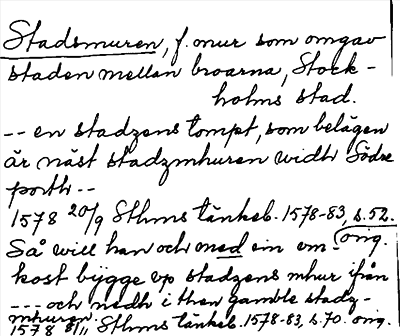 Stadsmuren, f. mur som omgav
staden mellan broarna, Stock-
holms stad.
-- en stadzens tompt, som belägen
är näst stadzmhuren widh Södre
porth --
1578 20/9 Sthms tänkeb. 1578-83, s. 52.
orig.
Så will han och med ein om-
kost bÿgge vp stadzens mhur ifrån
--- och nedh i then gamble stadz-
mhuren.
1578 8/11 Sthms tänkeb. 1578-83, s. 70. orig.